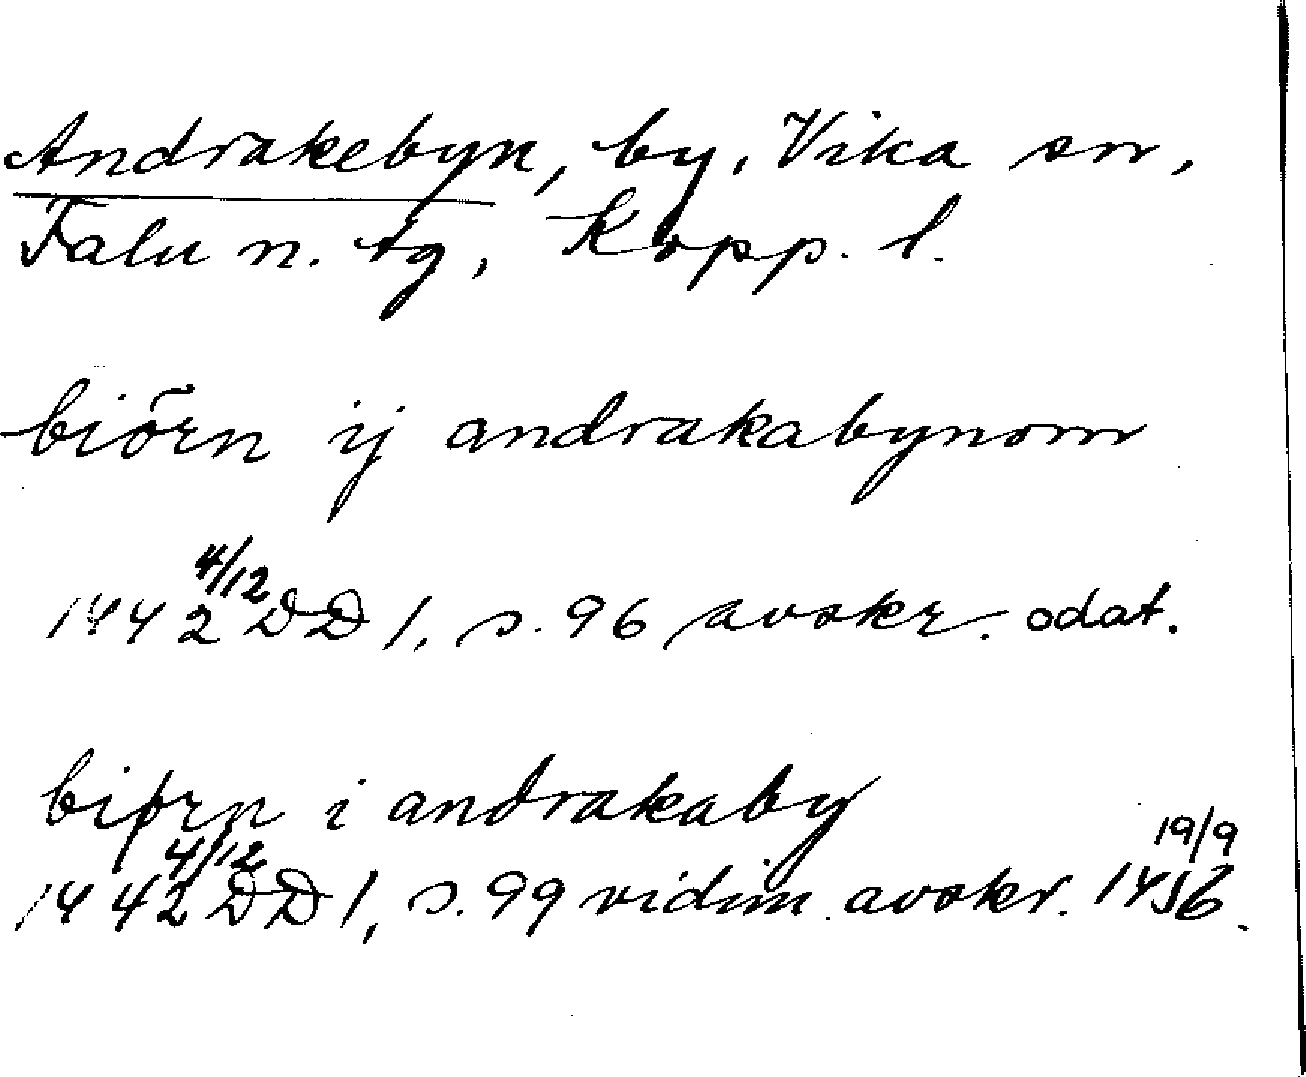 Andrakebyn, by, Vika sn,
Falu n. tg, Kopp. l.
biörn ij andrakabynom
1442 4/12 DD 1, s. 96 avskr. odat.
biørn i andrakaby
1442 4/12 DD 1, s. 99 vidim. avskr. 19/9 1456.